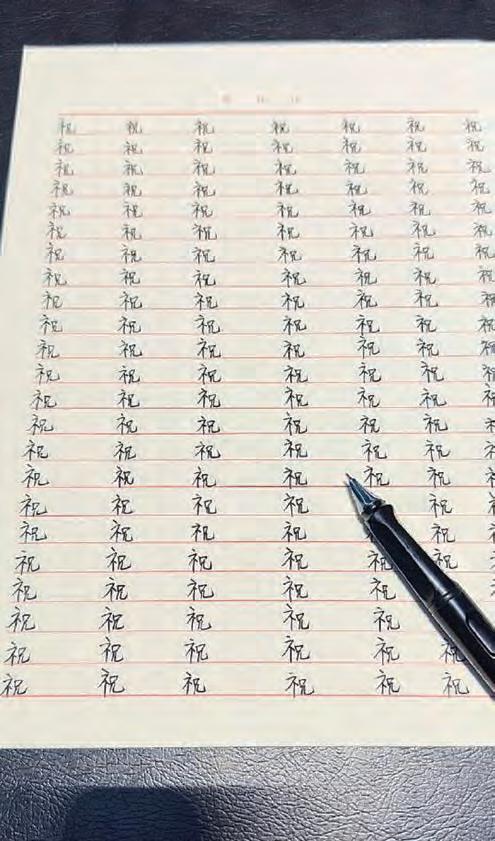 祝 祝 祝 祝 祝 祝 祝
祝 祝 祝 祝 祝 祝 祝
祝 祝 祝 祝 祝 祝 祝
祝 祝 祝 祝 祝 祝 祝
祝 祝 祝 祝 祝 祝 祝
祝 祝 祝 祝 祝 祝 祝
祝 祝 祝 祝 祝 祝 祝
祝 祝 祝 祝 祝 祝 祝
祝 祝 祝 祝 祝 祝
祝 祝 祝 祝 祝 祝
祝 祝 祝 祝 祝 祝
祝 祝 祝 祝 祝 祝
祝 祝 祝 祝 祝 祝
祝 祝 祝 祝 祝 祝
祝 祝 祝 祝 祝 祝
祝 祝 祝 祝 祝 祝
祝 祝 祝 祝 祝
祝 祝 祝 祝 祝
祝 祝 祝 祝 祝 祝
祝 祝 祝 祝 祝
祝 祝 祝 祝 祝
祝 祝 祝 祝 祝 祝
祝 祝 祝 祝 祝 祝